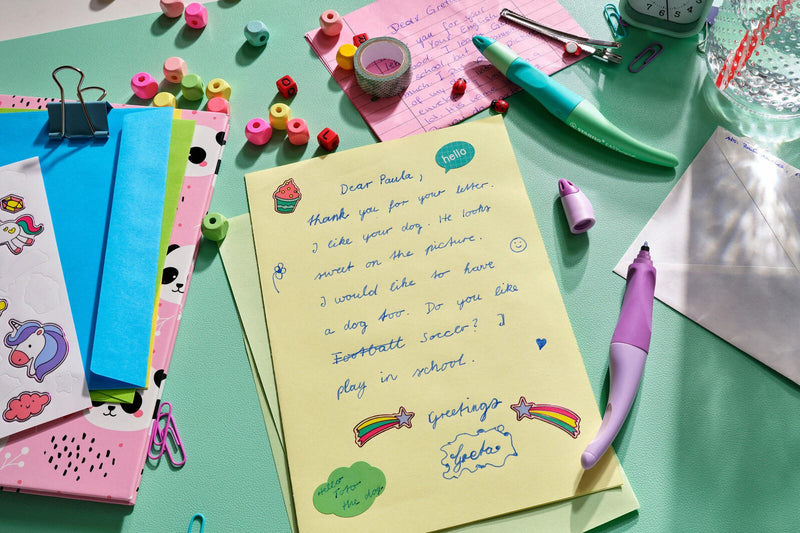 Dear Gre
you for your
Your English
I lea
school, but
much. I
of my
lot.
hello
Dear Paula,
thank you for your letter.
I like your dog. He looks
sweet on the picture.
I would like to have
a dog too. Do you like
Football Soccer? I
play in school.
Greetings
Greta
Hello
to
the dog
7 6 5